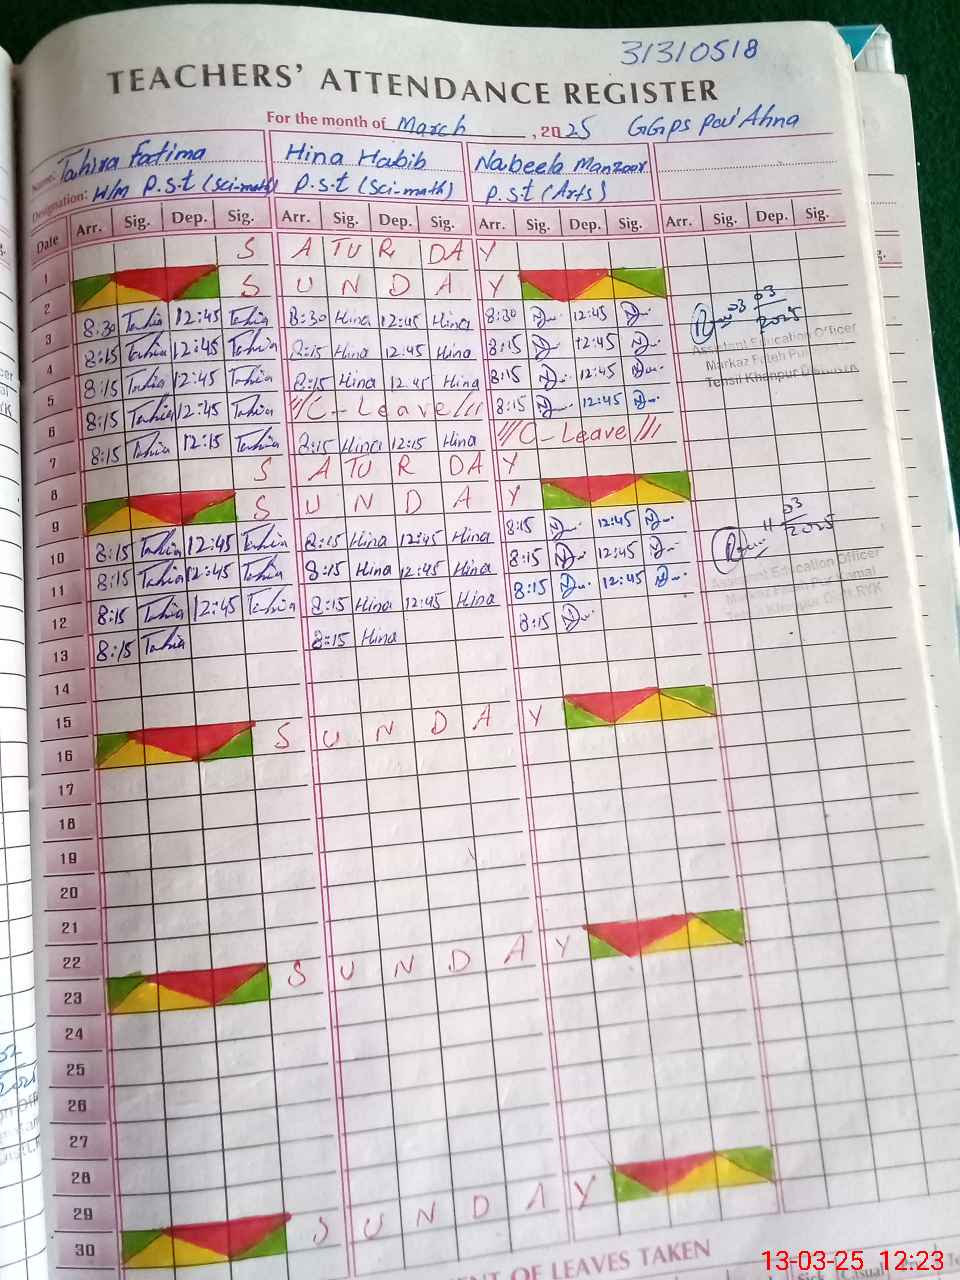 31310518
TEACHERS' ATTENDANCE REGISTER
For the month of March, 2025 GGPS
Name: Tahira Fatima Hina Habib Nabeela Manzoor
Designation: H/M P.S.t (Sci-math) P.S.t (Sci-math) P.S.t (Arts)
Date Arr. Sig. Dep. Sig. Arr. Sig. Dep. Sig. Arr. Sig. Dep. Sig. Arr. Sig. Dep. Sig.
1 S A TU R DA Y
2 S U N D A Y
3 8:30 Tahia 12:45 Tahia 8:30 Hina 12:45 Hina 8:30 12:45
4 8:15 Tahia 12:45 Tahia 8:15 Hina 12:45 Hina 8:15 12:45
5 8:15 Tahia 12:45 Tahia 8:15 Hina 12:45 Hina 8:15 12:45
6 8:15 Tahia 12:45 Tahia C-Leave 8:15 12:45
7 8:15 Tahia 12:15 Tahia 8:15 Hina 12:15 Hina C-Leave
8 S A TU R DA Y
9 S U N D A Y
10 8:15 Tahia 12:45 Tahia 8:15 Hina 12:45 Hina 8:15 12:45
11 8:15 Tahia 12:45 Tahia 8:15 Hina 12:45 Hina 8:15 12:45
12 8:15 Tahia 12:45 Tahia 8:15 Hina 12:45 Hina 8:15 12:45
13 8:15 Tahia 8:15 Hina 8:15
14
15
16 S U N D A Y
17
18
19
20
21
22
23 S U N D A Y
24
25
26
27
28
29
30 S U N D A Y
03 03 2025
Assistant Education Officer
Markaz Fateh Pur
Tehsil Khanpur
11 03 2025
Assistant Education Officer
Markaz Fateh Pur Kamal
Tehsil Khanpur Distt. RYK
OF LEAVES TAKEN
Sick Casual
13-03-25 12:23